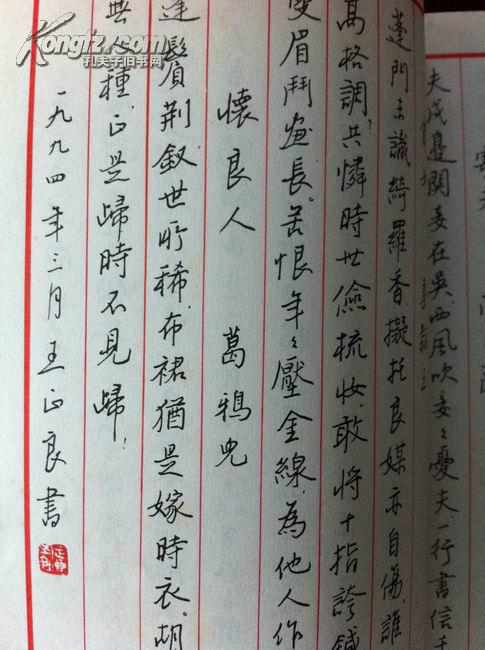 夫戍邊關妾在吳。西風吹妾々憂夫。一行書信千
蓬門未識綺羅香。擬托良媒亦自傷。誰
高格調，共憐時世儉梳妝。敢將十指誇鍼
雙眉鬥畫長。苦恨年々壓金線，為他人作
懷良人 葛鴉兒
蓬鬢荊釵世所稀，布裙猶是嫁時衣。胡
無種，正是歸時不見歸！
一九九四年三月王正良書
Kongfz.com
孔夫子旧书网